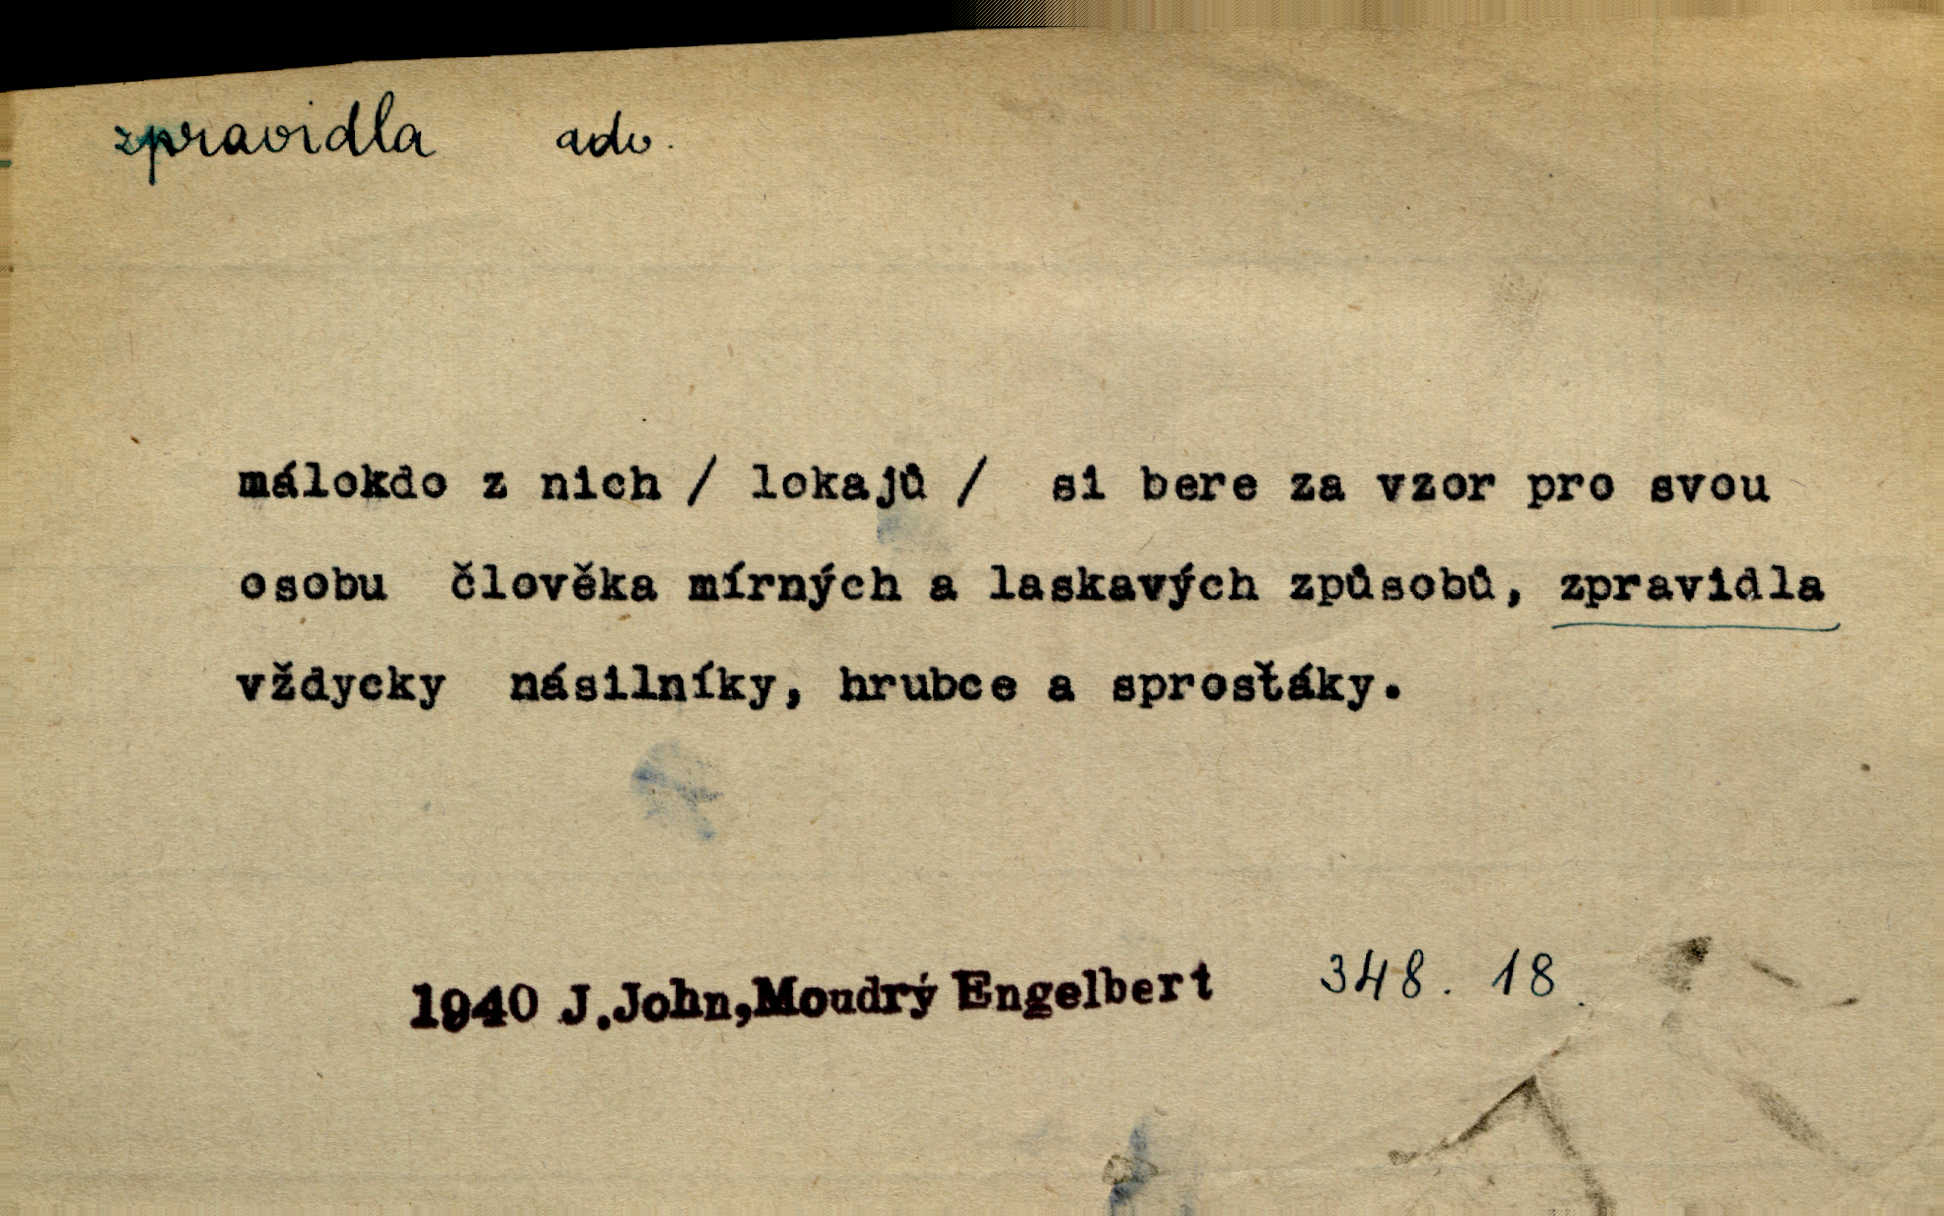 zpravidla adv.
málokdo z nich / lokajů / si bere za vzor pro svou
osobu člověka mírných a laskavých způsobů, zpravidla
vždycky násilníky, hrubce a sprosťáky.
1940 J.John,Moudrý Engelbert 348. 18.